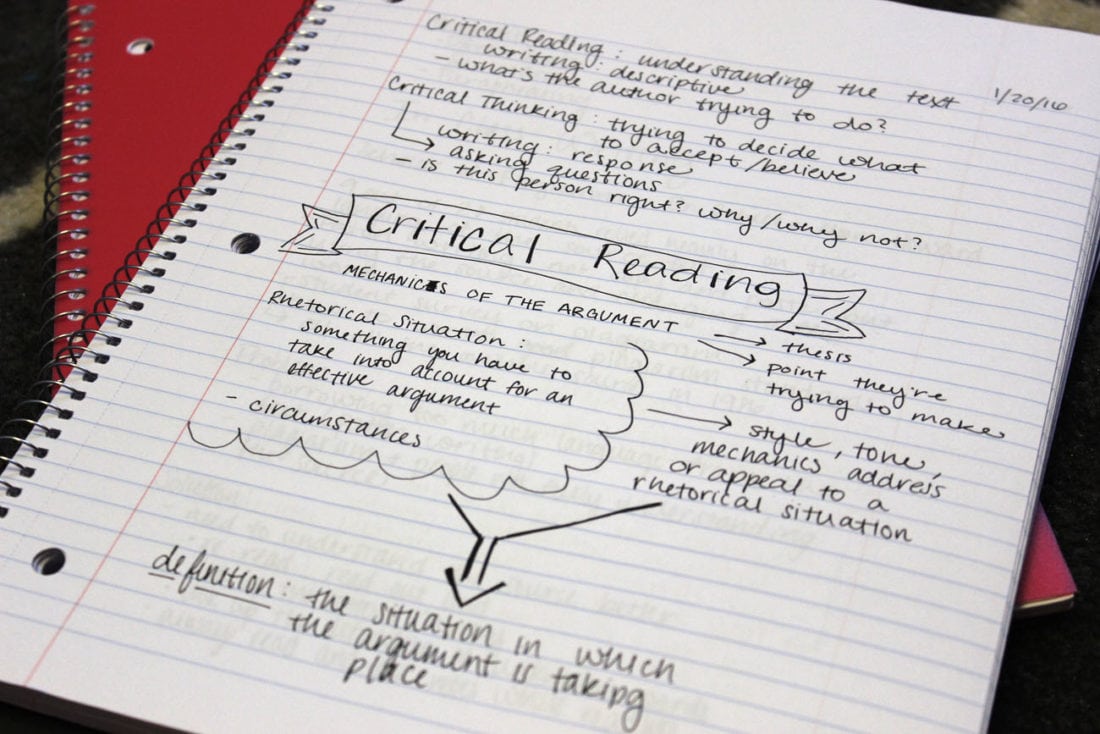 Critical Reading : understanding the text
1/20/16
writing: descriptive
- what's the author trying to do?
Critical Thinking : trying to decide what
to accept/believe
writing: response
asking questions
- is this person right? why/why not?
Critical Reading
MECHANICS OF THE ARGUMENT
thesis
point they're
trying to make
Rhetorical Situation :
something you have to
take into account for an
effective argument
- circumstances
style, tone,
mechanics address
or appeal to a
rhetorical situation
definition : the situation in which
the argument is taking
place